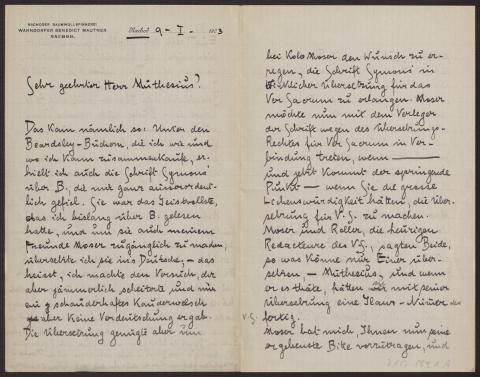 NACHODER BAUMWOLLSPINNEREI
WARNDORFER BENEDICT MAUTNER
NACHOD.
Nachod 9 - I. - 1903
Sehr geehrter Herr Muthesius!
Das kam nämlich so: Unter den
Beardsley-Büchern, die ich wie und
wo ich kann zusammenkaufe, er-
hielt ich auch die Schrift Symons'
über B. die mir ganz ausserordent-
lich gefiel. Sie war das Geistvollste,
das ich bislang über B. gelesen
hatte, und um sie auch meinem
Freunde Moser zugänglich zu machen,
übersetzte ich sie ins Deutsche, - das
heisst, ich machte den Versuch, der
aber jämmerlich scheiterte und nur
ein schauderhaftes Kauderwelsch
aber keine Verdeutschung ergab.
Die Übersetzung genügte aber um
bei Kolo Moser den Wunsch zu er-
regen, die Schrift Symons' in
wirklicher Übersetzung für das
Ver Sacrum zu erlangen. Moser
möchte nun mit dem Verleger
der Schrift wegen des Übersetzungs-
Rechtes für Ver Sacrum in Ver-
bindung treten, wenn ———
und jetzt kommt der springende
Punkt — wenn Sie die grosse
Liebenswürdigkeit hätten, die Über-
setzung für V.S. zu machen.
Moser und Roller, die heurigen
Redacteure des V.S., sagten Beide,
so was könne nur Einer über-
setzen, - Muthesius, und wenn
er es thäte, hätten wir mit seiner
Übersetzung eine Haus-Numer des
V.S. fertig.
Moser hat mich Ihnen nun seine
ergebenste Bitte vorzutragen, und